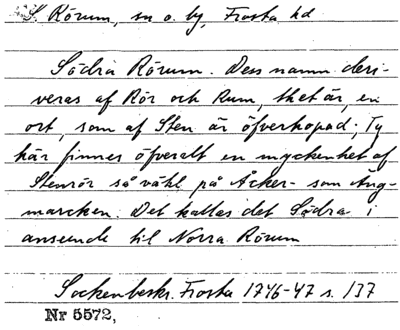 S. Rörum, sn o. by, Frosta hd
Södra Rörum. Dess namn deri-
veras af Rör och Rum, thet är, en
ort, som af Sten är öfverhopad; Ty
här finnes öfveralt en myckenhet af
Stenrör så wähl på Åcker- som Äng-
marcken. Det kallas det Södra i
anseende til Norra Rörum
Sockenbeskr. Frosta 1746-47 s. 137
Nr 5572,